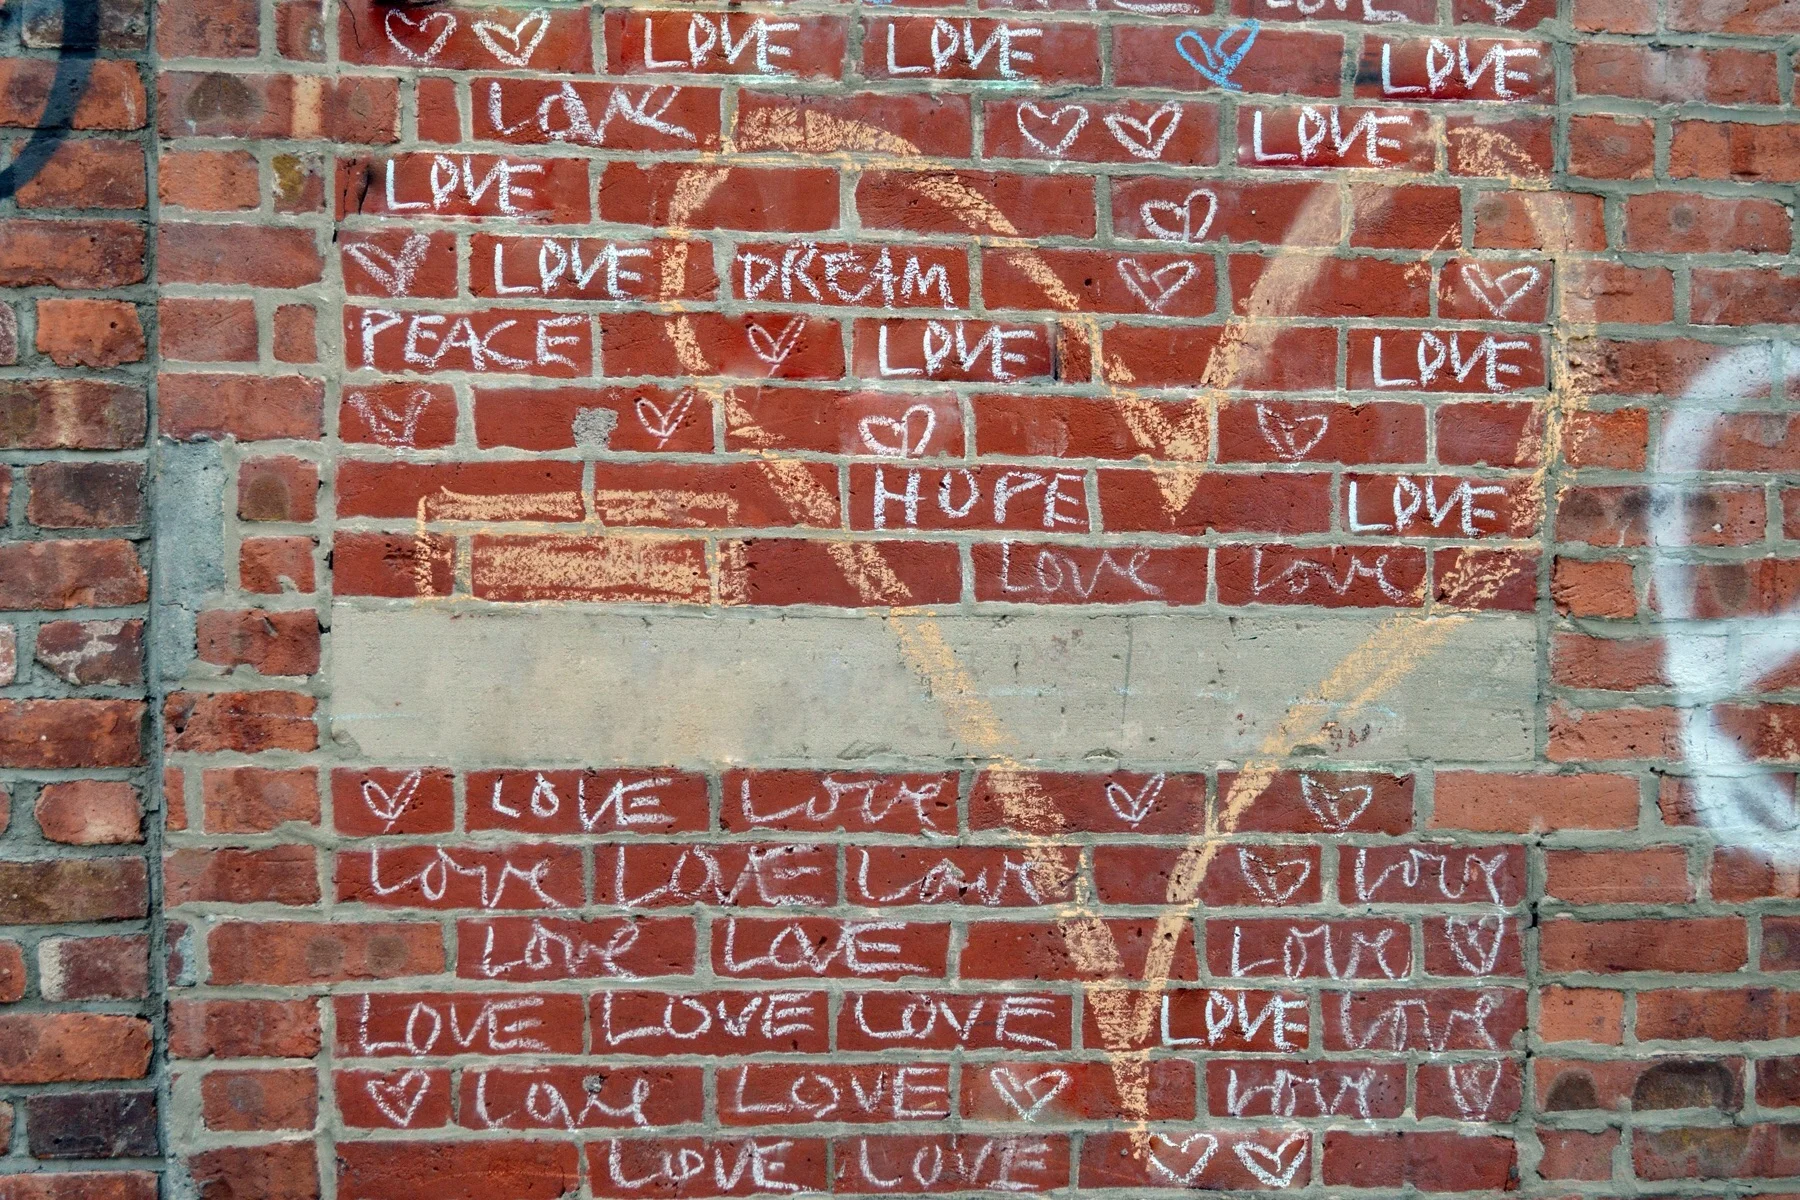 LOVE
LOVE LOVE LOVE
Love LOVE
LOVE
LOVE DREAM
PEACE LOVE LOVE
HOPE LOVE
Love Love
LOVE Love
Love LOVE Love Love
Love LOVE Love
LOVE LOVE LOVE LOVE Love
Love LOVE Love
LOVE LOVE